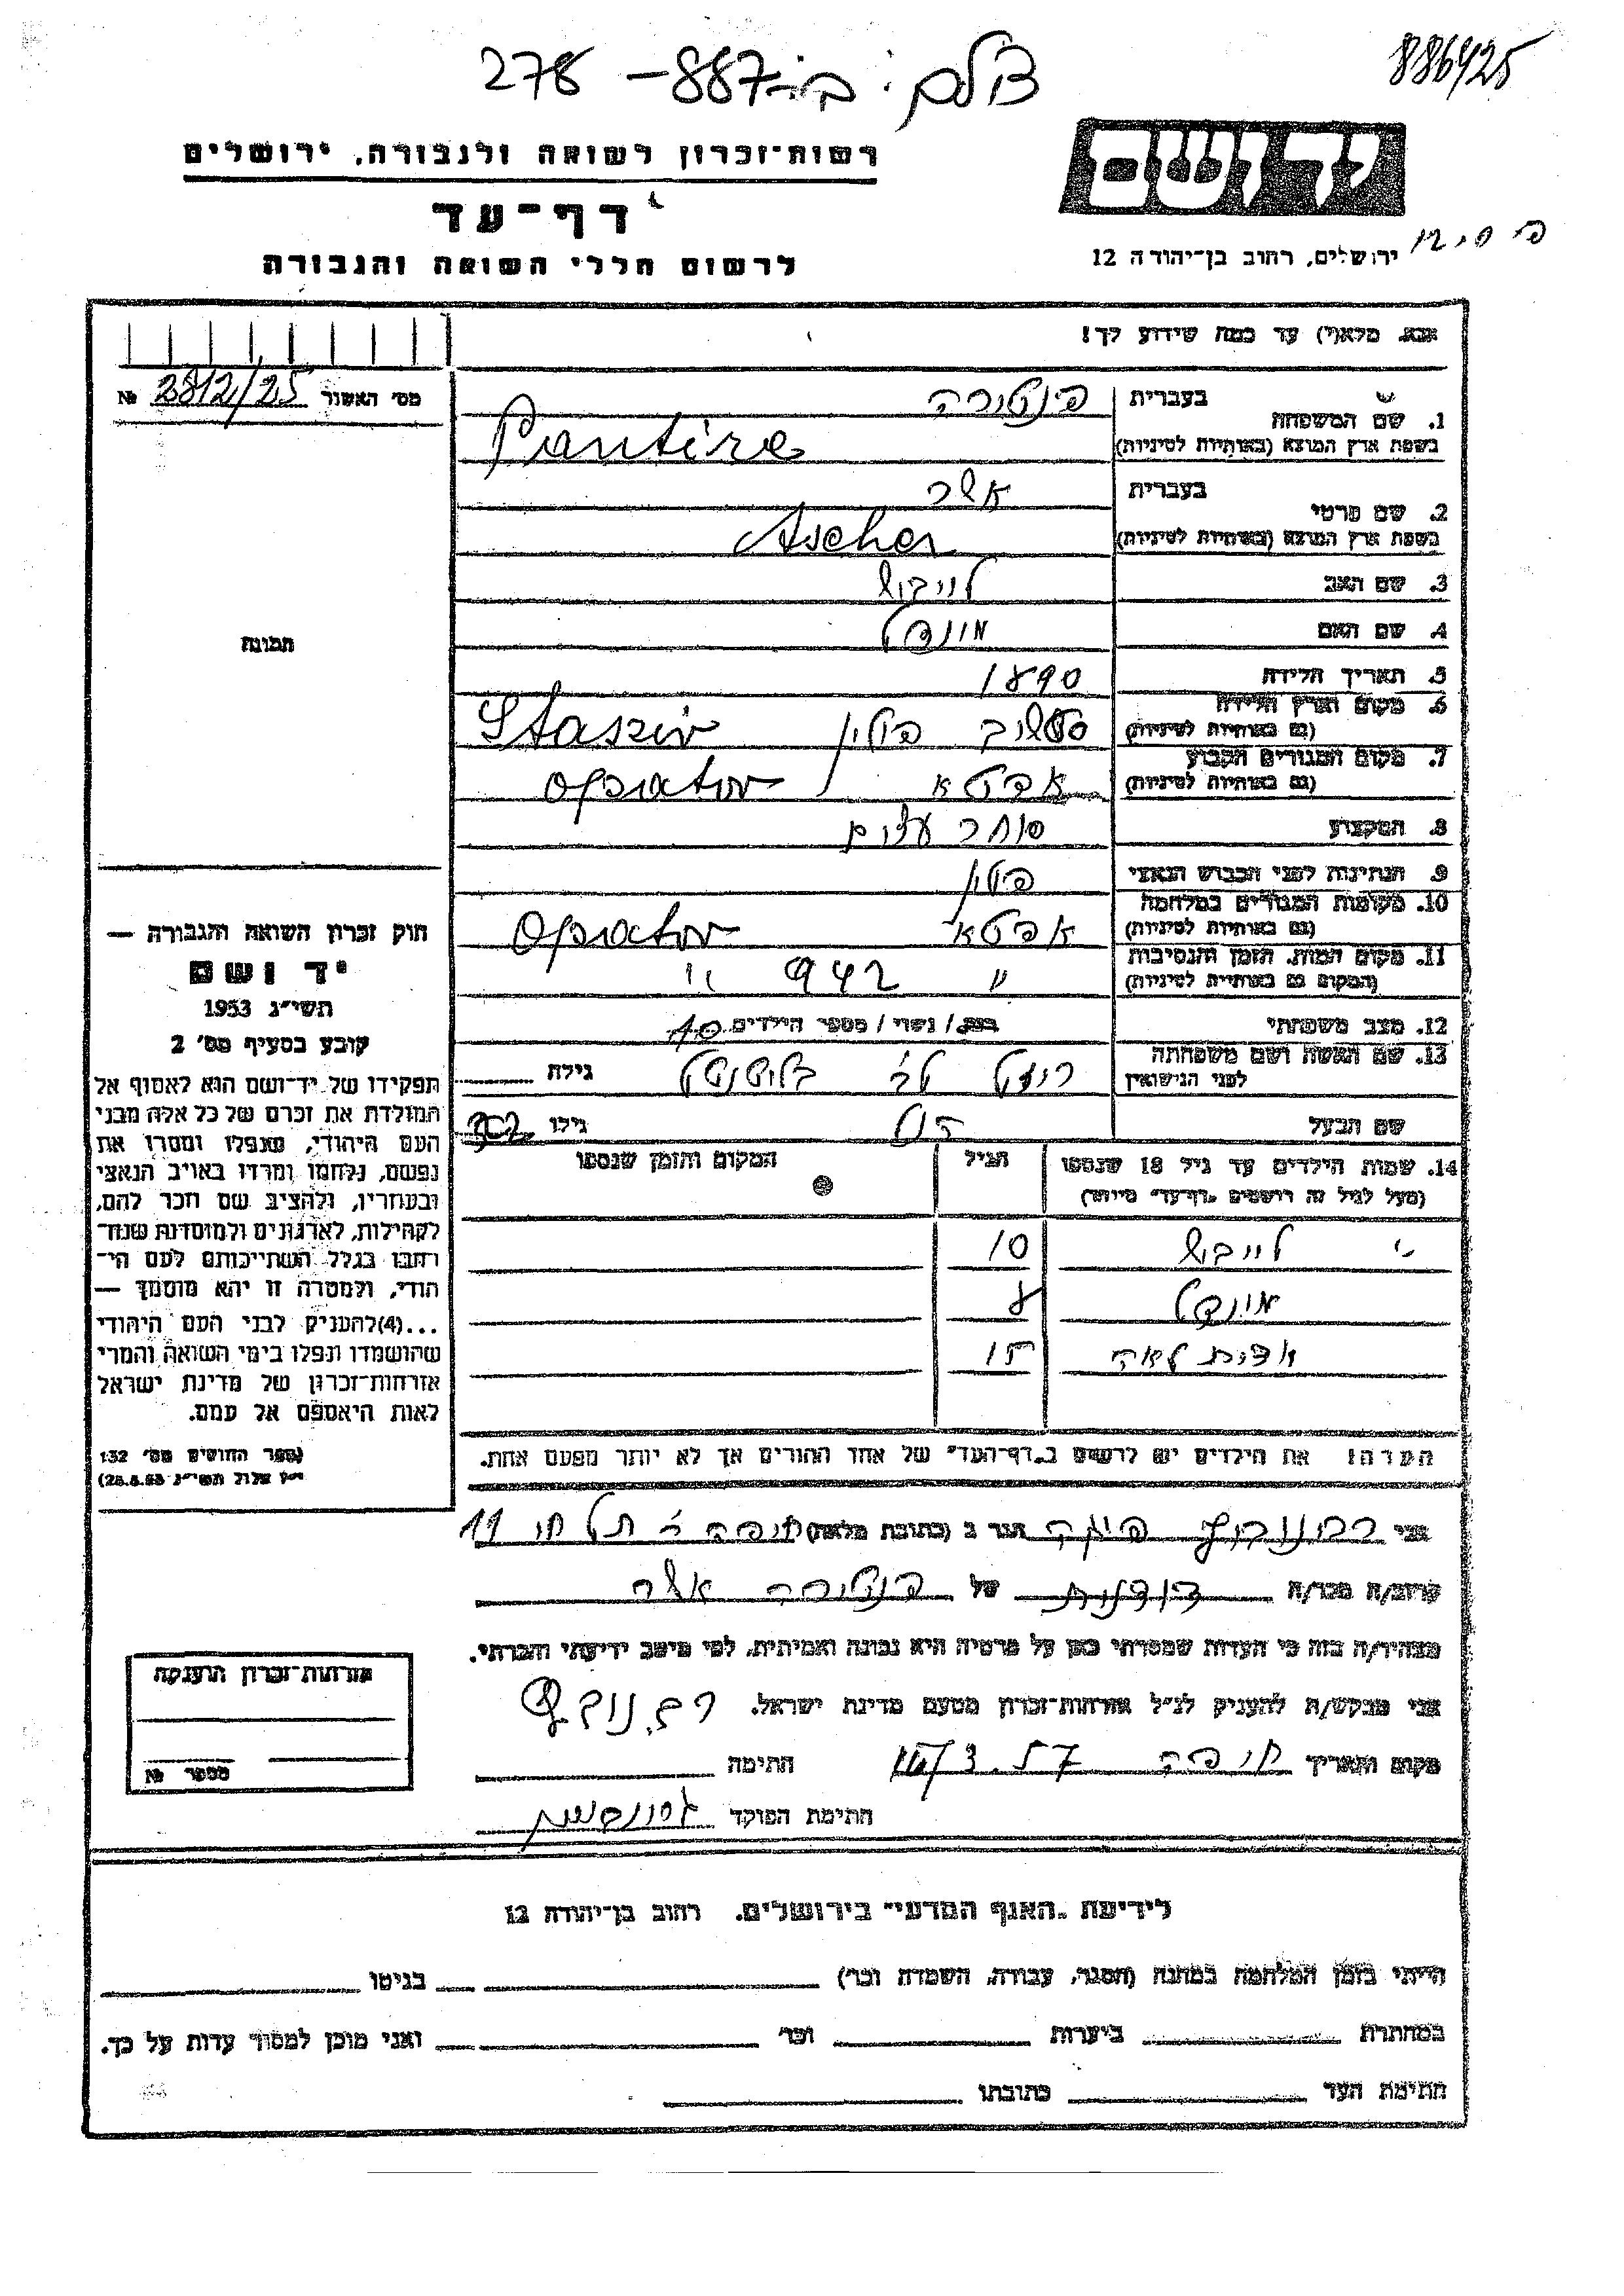 886425
צולם: ב.-887 – 278
יד ושם
רשות-זכרון לשואה ולגבורה, ירושלים
דף-עד
לרשום חללי השואה והגבורה
ירושלים, רחוב בן-יהודה 12
אנא, מלא(י) עד כמה שידוע לך!
מס' האשור 2812/25 №
1. שם המשפחה
בעברית פנטירה
בשפת ארץ המוצא (באותיות לטיניות) Pantira
2. שם פרטי
בעברית אשר
בשפת ארץ המוצא (באותיות לטיניות) Ascher
3. שם האב לייבוש
4. שם האם
5. תאריך הלידה 1890
6. מקום וארץ הלידה
(גם באותיות לטיניות) פולין
7. מקום המגורים הקבוע
(גם באותיות לטיניות) אפטא
8. המקצוע סוחר עצים
9. הנתינות לפני הכבוש הנאצי פולין
10. מקומות המגורים במלחמה
(גם באותיות לטיניות) אפטא
11. מקום המות, הזמן והנסיבות
(המקום גם באותיות לטיניות) " 942 "
12. מצב משפחתי נשוי / מספר הילדים 10
13. שם האשה ושם משפחתה
לפני הנישואין גילה
שם הבעל גילו
14. שמות הילדים עד גיל 18 שנספו
(מעל לגיל זה רושמים "דף-עד" מיוחד)
הגיל
המקום והזמן שנספו
לייבוש 10
8
לאה 15
הערה: את הילדים יש לרשום ב"דף-העד" של אחד ההורים אך לא יותר מפעם אחת.
תמונה
חוק זכרון השואה והגבורה —
יד ושם
תשי"ג 1953
קובע בסעיף מס' 2
תפקידו של יד-ושם הוא לאסוף אל
המולדת את זכרם של כל אלה מבני
העם היהודי, שנפלו ומסרו את
נפשם, נלחמו ומרדו באויב הנאצי
ובעוזריו, ולהציב שם וזכר להם,
לקהילות, לארגונים ולמוסדות שנח-
רבו בגלל השתייכותם לעם הי-
הודי, ולמטרה זו יהא מוסמך —
...(4)להעניק לבני העם היהודי
שהושמדו ונפלו בימי השואה והמרי
אזרחות-זכרון של מדינת ישראל
לאות היאספם אל עמם.
(ספר החוקים מס' 132
י"ז אלול תשי"ג 28.8.53)
אני הגר ב (כתובת מלאה) חיפה תל חי 11
קרוב/ה מכר/ה בן דודנות של פנטירה אשר
מצהיר/ה בזה כי העדות שמסרתי כאן על פרטיה היא נכונה ואמיתית, לפי מיטב ידיעתי והכרתי.
אני מבקש/ת להעניק לנ"ל אזרחות-זכרון מטעם מדינת ישראל.
מקום ותאריך חיפה 3.57 חתימה
חתימת הפוקד
אזרחות-זכרון הוענקה
מספר №
לידיעת "האגף המדעי" בירושלים, רחוב בן-יהודה 12
הייתי בזמן המלחמה במחנה (הסגר, עבודה, השמדה וכו') בגיטו
במחתרת ביערות וכו' ואני מוכן למסור עדות על כך.
חתימת העד כתובתו